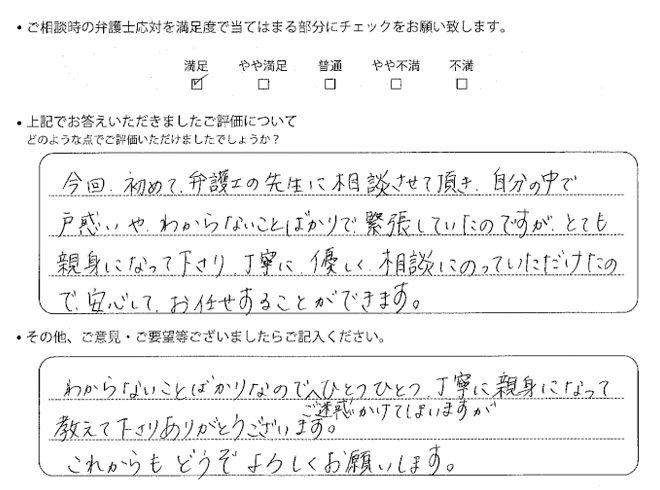 ・ご相談時の弁護士応対を満足度で当てはまる部分にチェックをお願い致します。
満足 やや満足 普通 やや不満 不満
☑ ☐ ☐ ☐ ☐
・上記でお答えいただきましたご評価について
どのような点でご評価いただけましたでしょうか？
今回、初めて、弁護士の先生に相談させて頂き、自分の中で
戸惑いや、わからないことばかりで、緊張していたのですが、とても
親身になって下さり、丁寧に、優しく、相談にのっていただけたの
で、安心して、お任せすることができます。
・その他、ご意見・ご要望等ございましたらご記入ください。
わからないことばかりなので、ひとつひとつ、丁寧に親身になって
ご迷惑かけてしまいますが
教えて下さりありがとうございます。
これからも どうぞ よろしくお願いします。